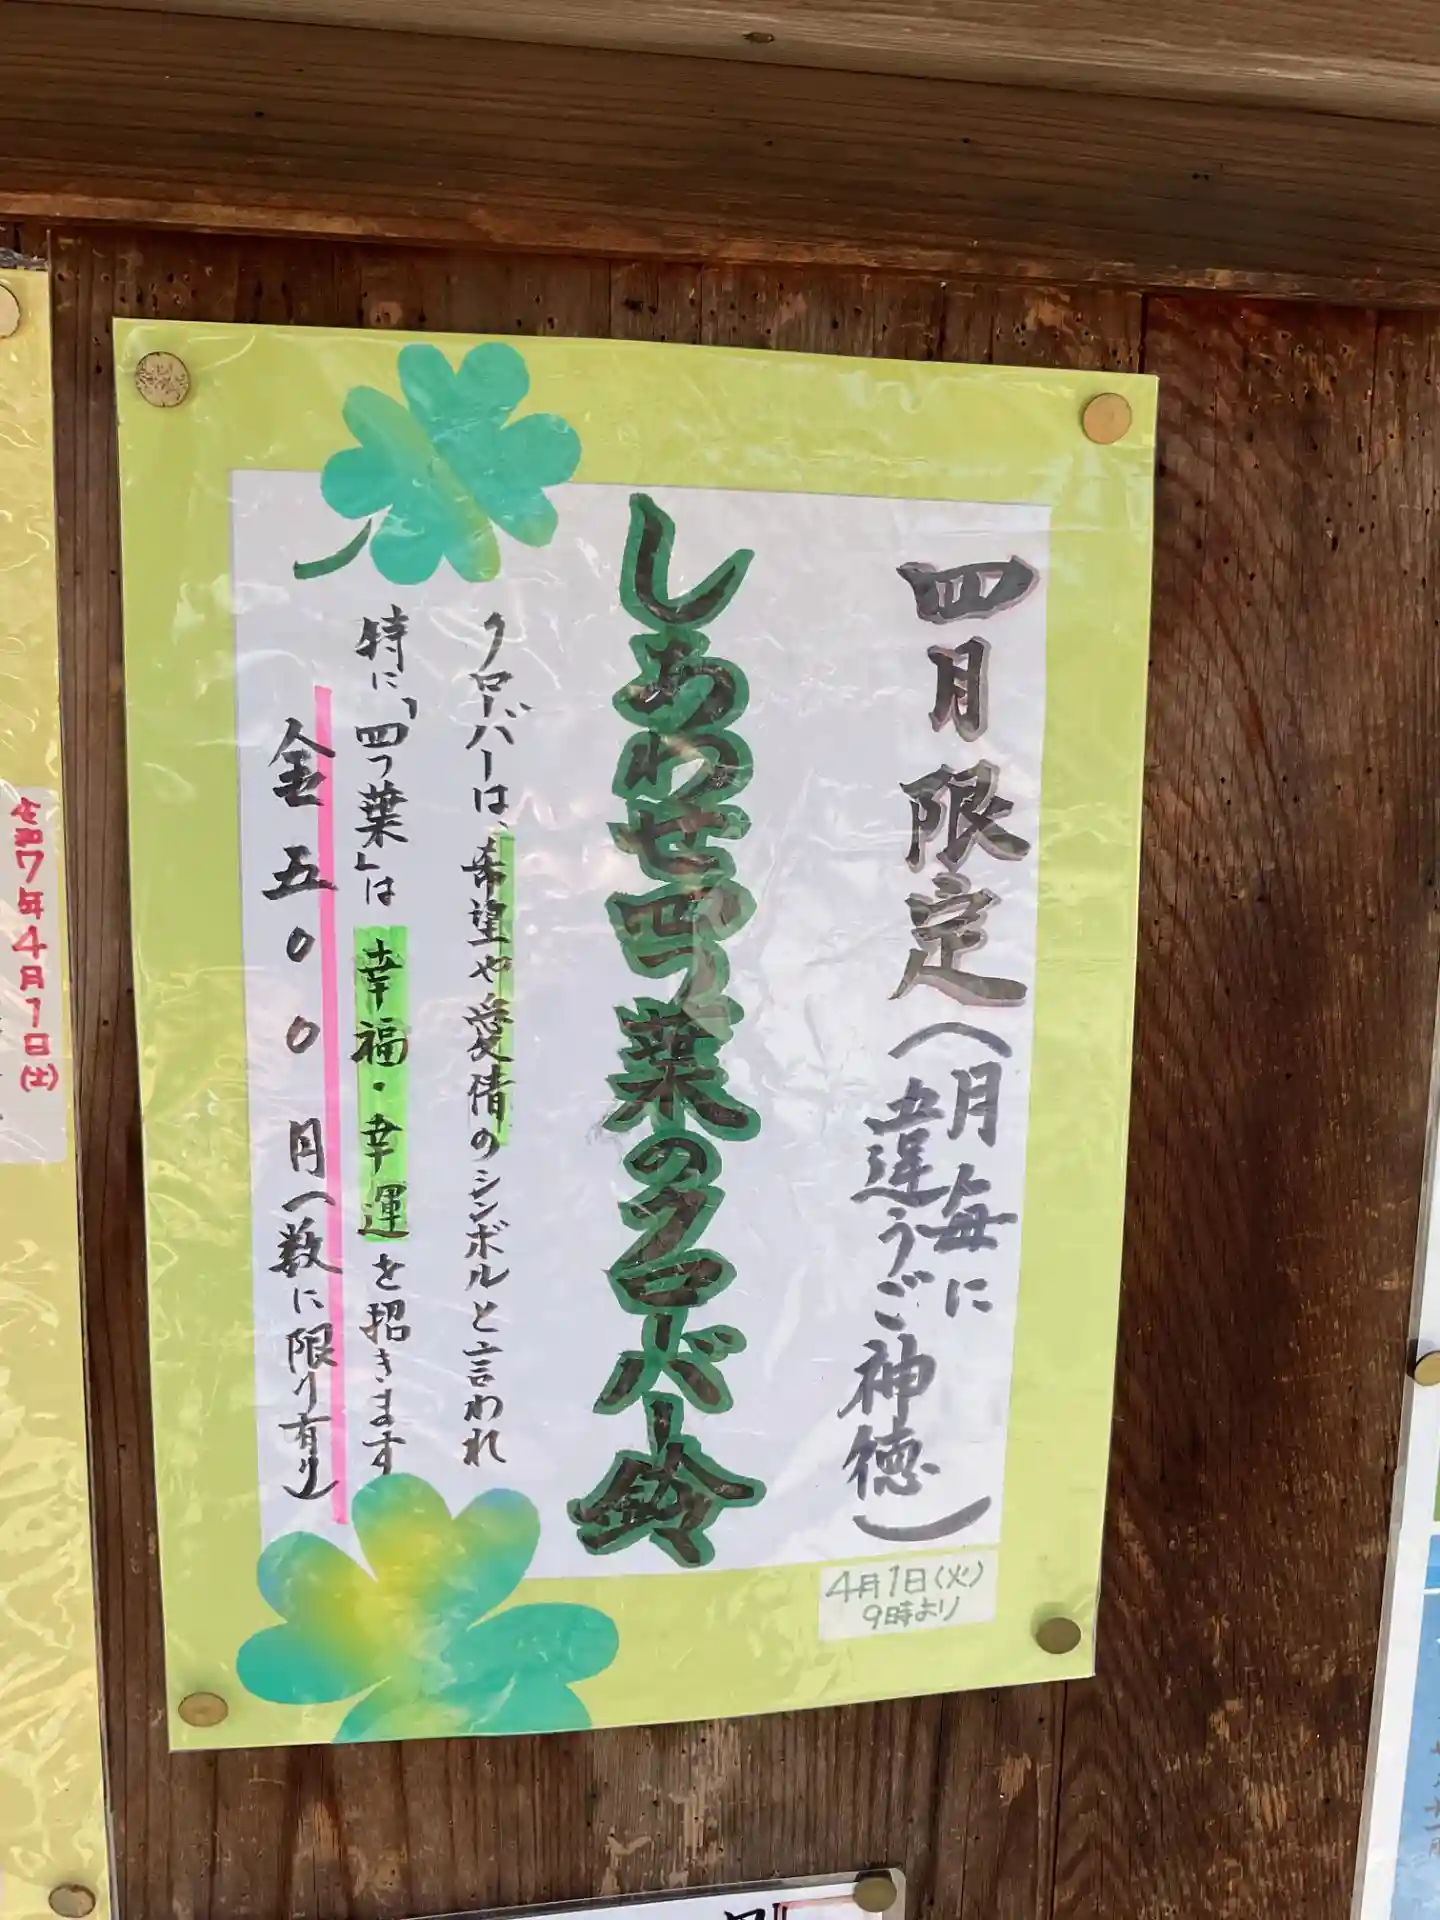 四月限定(月毎に
違うご神徳)
しあわせ四つ葉のクローバー鈴
クローバーは、希望や愛情のシンボルと言われ
特に「四つ葉」は幸福・幸運を招きます
金五〇〇円(数に限り有り)
4月1日(火)
9時より
令和7年4月1日(土)